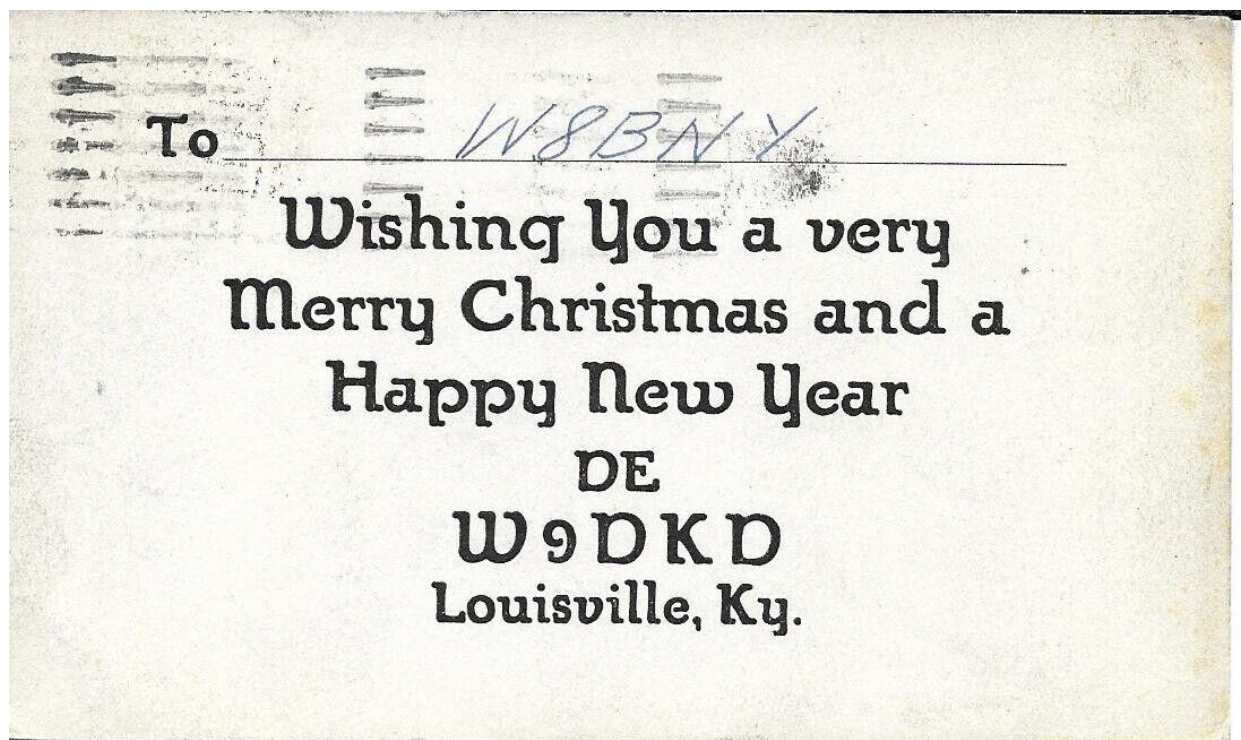 To W8BNY
Wishing You a very
Merry Christmas and a
Happy New Year
DE
W9DKD
Louisville, Ky.